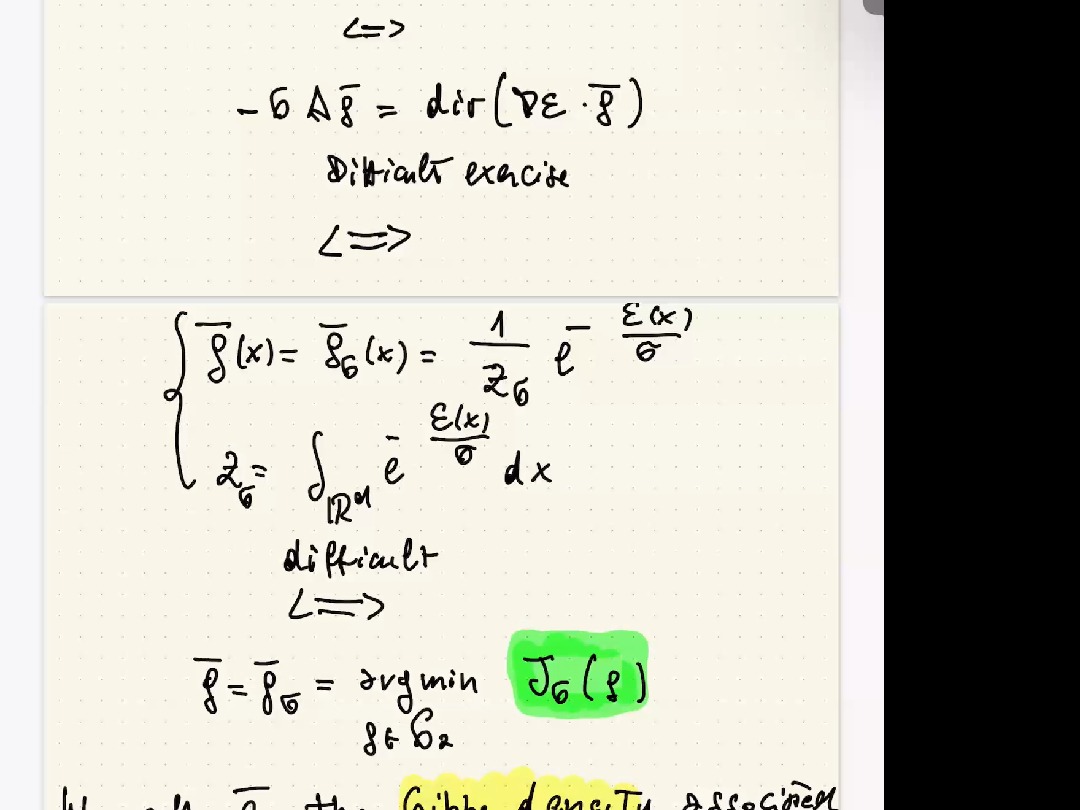 <=>
- σ Δ ρ̄ = div(∇ε · ρ̄)
Difficult exercise
<=>
{ ρ̄(x) = ρ̄_σ(x) = 1/Z_σ e^{- ε(x)/σ}
Z_σ = ∫_{ℝ^d} e^{- ε(x)/σ} dx
difficult
<=>
ρ̄ = ρ̄_σ = argmin J_σ(ρ)
the Gibbs density